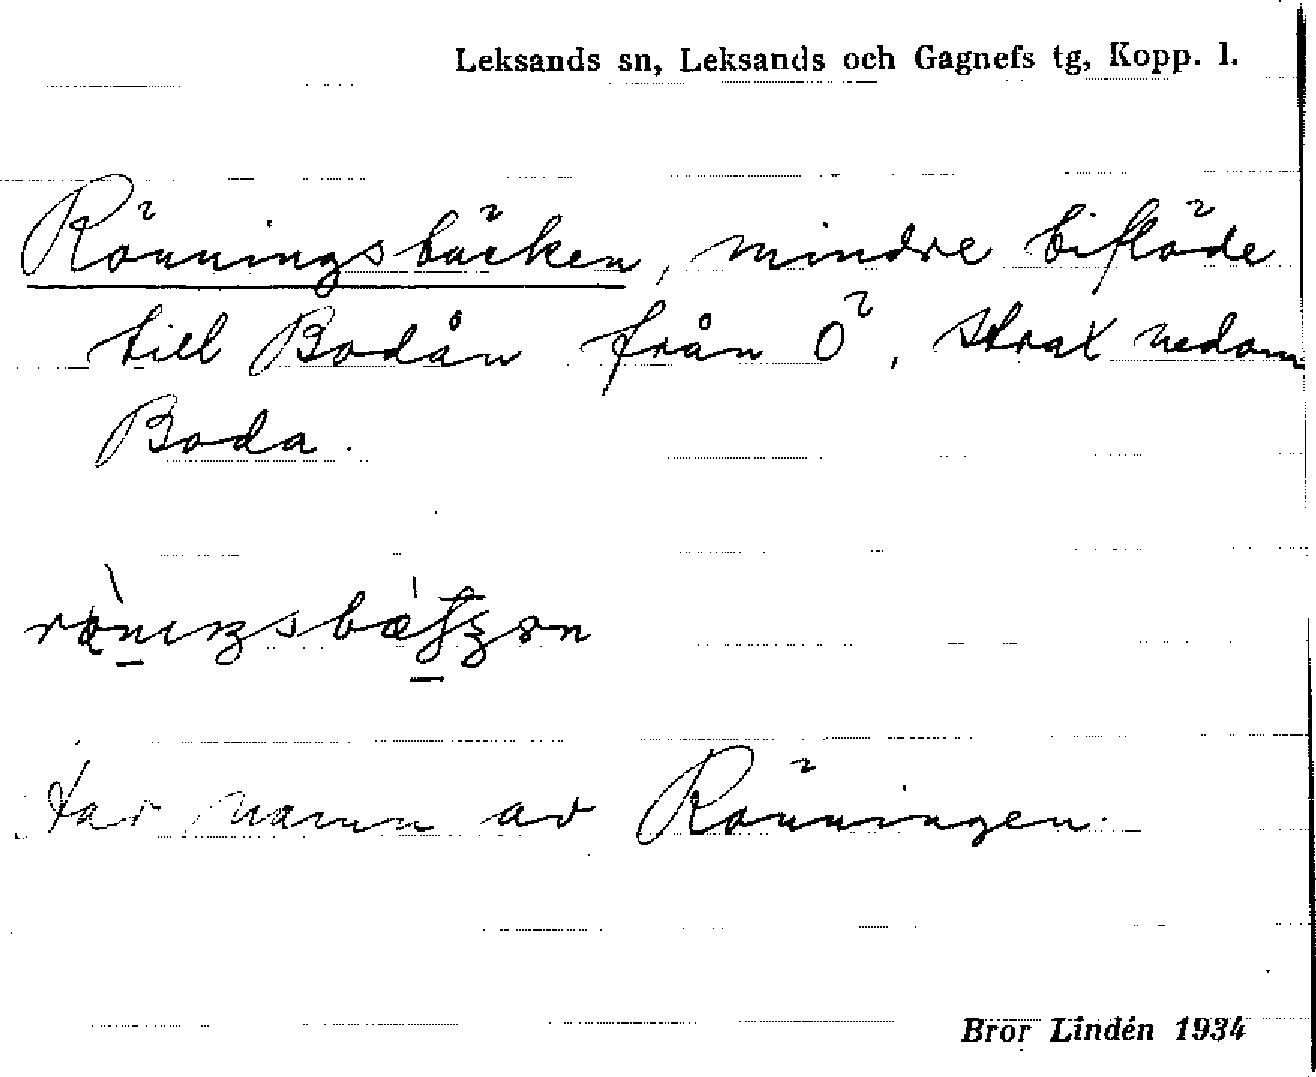 Leksands sn, Leksands och Gagnefs tg, Kopp. l.
Rönningsbäcken, mindre biflöde
till Bodån från Ö, strax nedom
Boda.
tar namn av Rönningen.
Bror Lindén 1934